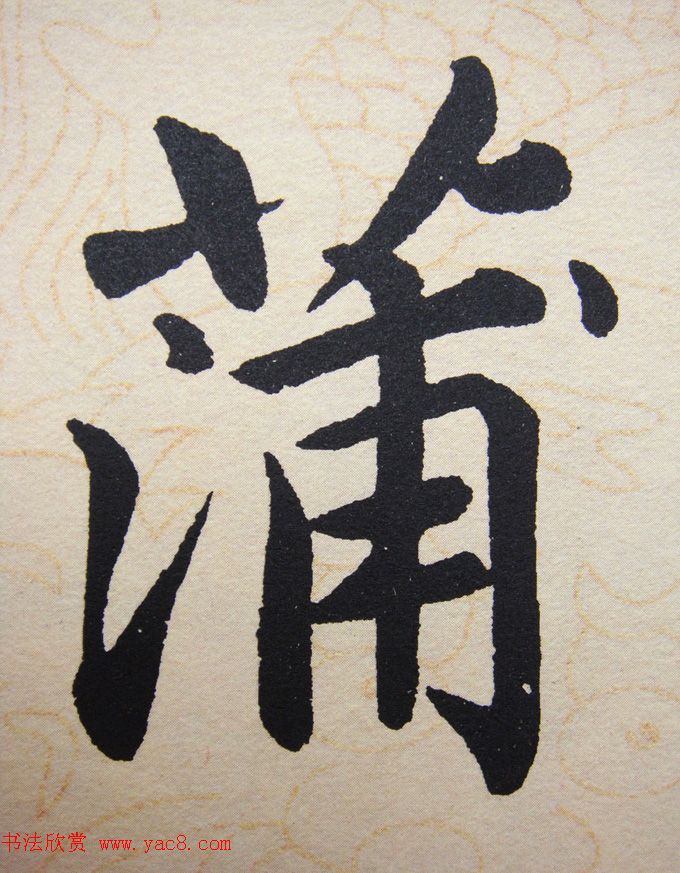 蒲
书法欣赏 www.yac8.com